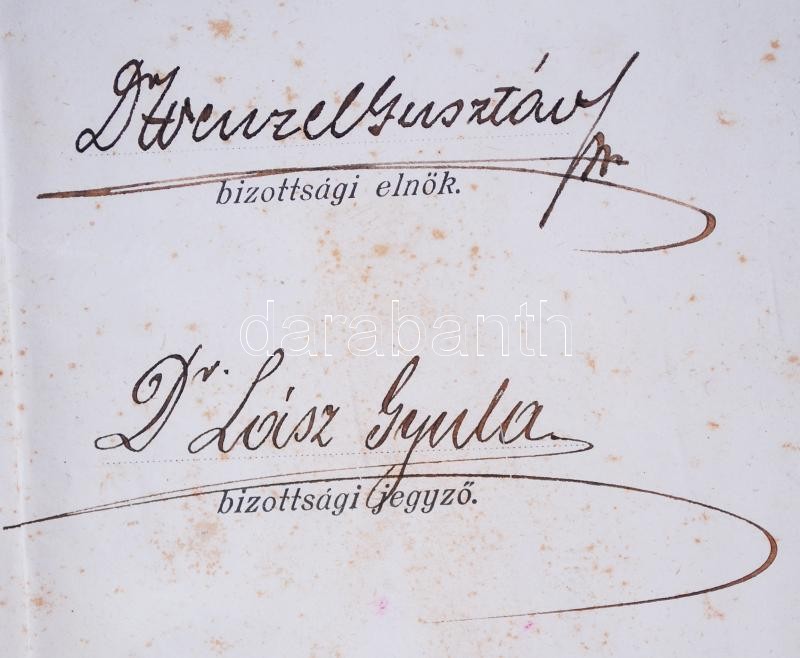 Dr Wenzel Gusztáv
bizottsági elnök.
darabanth
Dr. Lász Gyula
bizottsági jegyző.